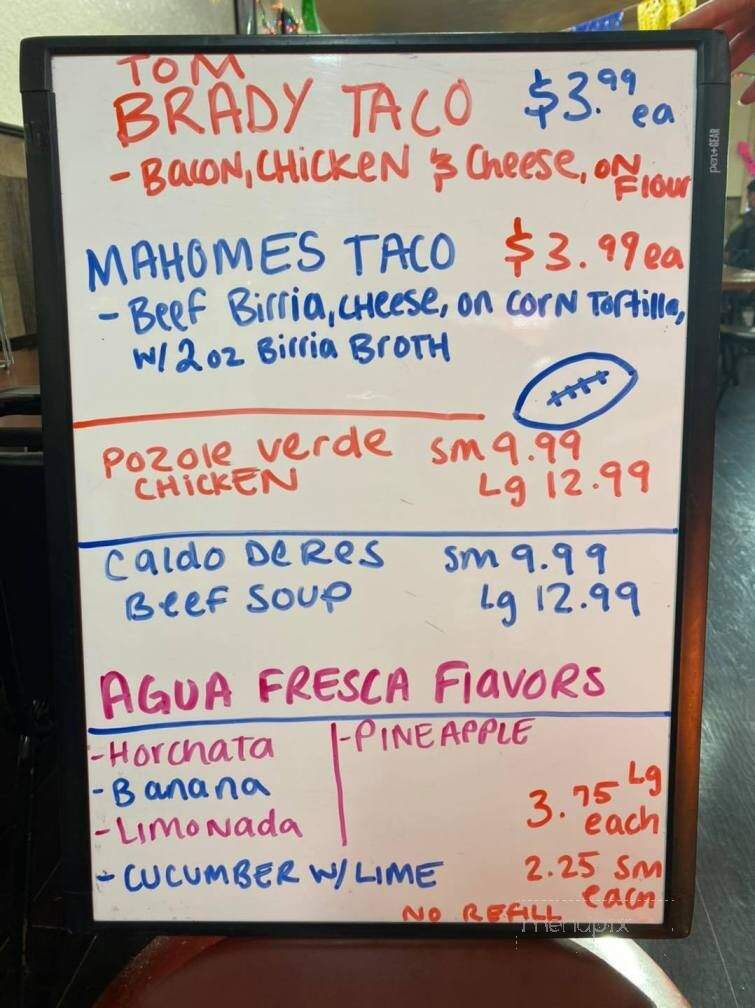 TOM
BRADY TACO $3.99 ea
- BACON, CHICKEN & Cheese, ON
Flour
MAHOMES TACO $3.99 ea
- Beef Birria, CHeese, on CORN TorTilla,
W/ 2 oz Birria BROTH
POZOLE verde sm 9.99
CHICKEN Lg 12.99
CALDO DE RES sm 9.99
BEEF SOUP Lg 12.99
AGUA FRESCA FlAVORS
- Horchata - PINEAPPLE
- Banana
- LIMONADA
3.75 Lg
each
- CUCUMBER W/ LIME 2.25 sm
each
NO REFILL
menupix
pen+GEAR